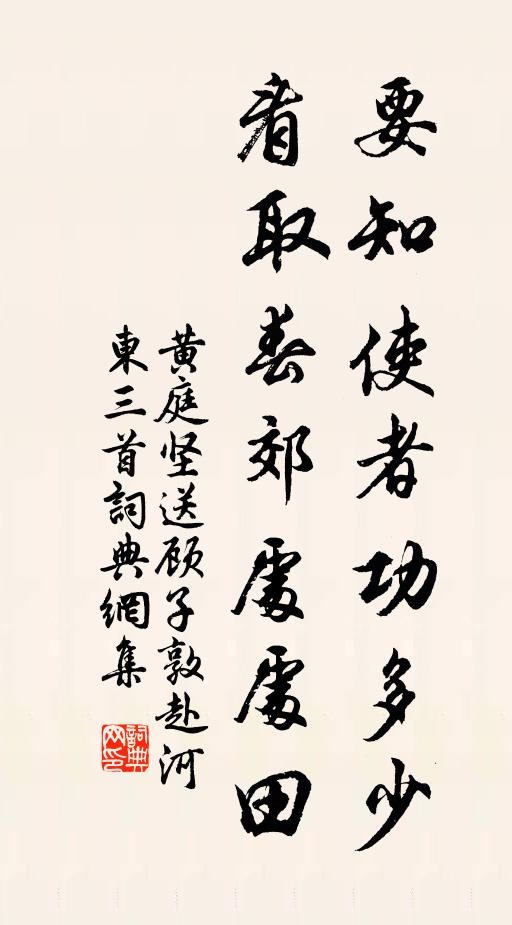 要知使者功多少
看取春郊處處田
黄庭坚送顾子敦赴河
東三首詞典網集
詞典網印